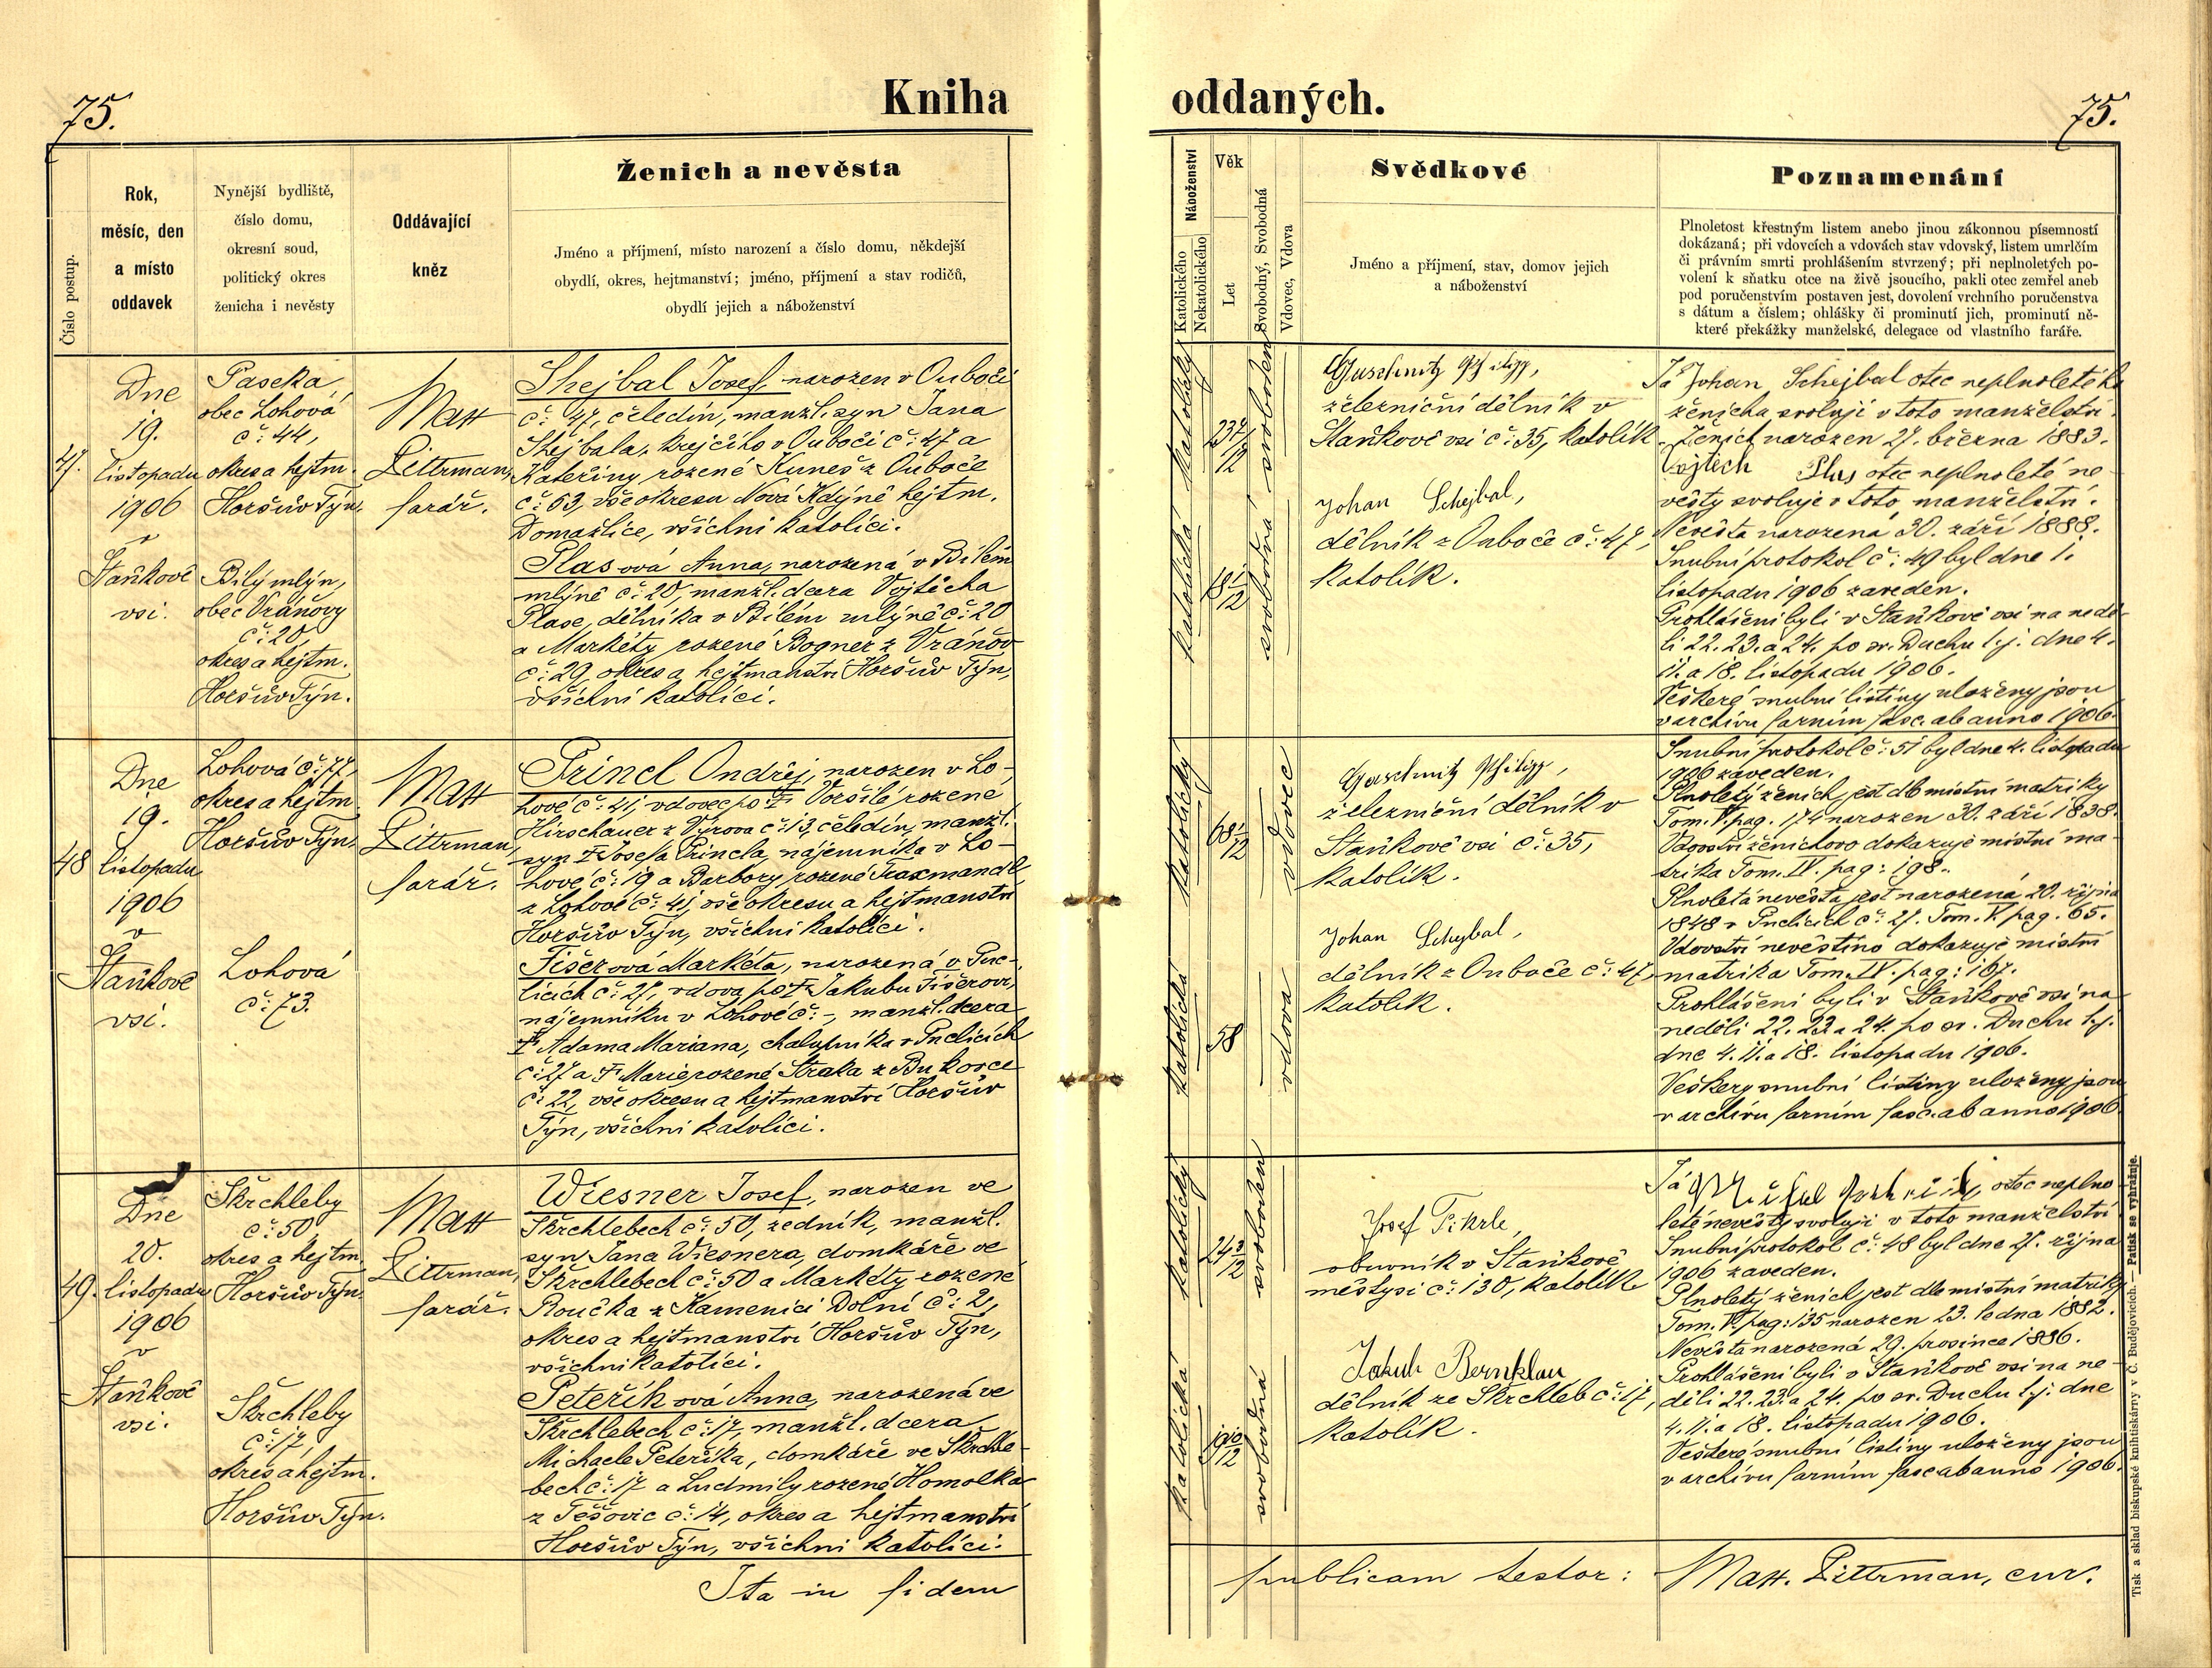 75.
Kniha
Číslo postup.
Rok,
měsíc, den
a místo
oddavek
Nynější bydliště,
číslo domu,
okresní soud,
politický okres
ženicha i nevěsty
Oddávající
kněz
Ženich a nevěsta
Jméno a příjmení, místo narození a číslo domu, někdejší
obydlí, okres, hejtmanství; jméno, příjmení a stav rodičů,
obydlí jejich a náboženství
47.
Dne
19.
listopadu
1906
v
Staňkově
vsi.
Paseka,
obec Lohová
č: 44,
okres a hejtm.
Horšův Týn.
Bílý mlýn,
obec Vráňovy
č: 20
okres a hejtm.
Horšův Týn.
Matt
Littrman,
farář.
Shejbal Josef, narozen v Ouboči
č: 47, čeledín, manžl. syn Jana
Shejbala, krejčího v Ouboči č: 47 a
Kateřiny rozené Kuneš z Ouboče
č: 63, vše okresu Nová Kdýně hejtm.
Domažlice, všichni katolíci.
Plasová Anna, narozená v Bílém
mlýně č: 20, manžl. dcera Vojtěcha
Plase, dělníka v Bílém mlýně č: 20
a Markéty rozené Bogner z Vráňov
č: 29, okres a hejtmanství Horšův Týn,
všichni katolíci.
48
Dne
19.
listopadu
1906
v
Staňkově
vsi.
Lohová č: 77,
okres a hejtm.
Horšův Týn.
Lohová
č: 73.
Matt
Littrman,
farář.
Princl Ondřej, narozen v Lo-
hové č: 41, vdovec po † Voršile rozené
Hirschauer z Výrova č: 13, čeledín, manžl.
syn † Josefa Princla, nájemníka v Lo-
hové č: 19 a Barbory rozené Traxmandl
z Lohové č: 41, vše okresu a hejtmanství
Horšův Týn, všichni katolíci.
Fišerová Markéta, narozená v Puc-
licích č: 27, vdova po † Jakubu Fišerovi,
nájemníku v Lohové č: -, manžl. dcera
† Adama Mariana, chalupníka v Puclicích
č: 27 a † Marie rozené Straka z Bukovce
č: 22, vše okresu a hejtmanství Horšův
Týn, všichni katolíci.
49.
Dne
20.
listopadu
1906
v
Staňkově
vsi.
Škrchleby
č: 50
okres a hejtm.
Horšův Týn.
Škrchleby
č: 17,
okres a hejtm.
Horšův Týn.
Matt
Littrman,
farář.
Wiesner Josef, narozen ve
Škrchlebech č: 50, zedník, manžl.
syn Jana Wiesnera, domkáře ve
Škrchlebech č: 50 a Markéty rozené
Roučka z Kamenici Dolní č: 2,
okres a hejtmanství Horšův Týn,
všichni katolíci.
Peteříková Anna, narozená ve
Škrchlebech č: 17, manžl. dcera
Michaele Peteříka, domkáře ve Škrchle-
bech č: 17 a Ludmily rozené Homolka
z Těšovic č: 14, okres a hejtmanství
Horšův Týn, všichni katolíci.
Ita in fidem
oddaných.
75.
Náboženství
Katolického
Nekatolického
Věk
Let
Svobodný, Svobodná
Vdovec, Vdova
Svědkové
Jméno a příjmení, stav, domov jejich
a náboženství
Poznamenání
Plnoletost křestným listem anebo jinou zákonnou písemností
dokázaná; při vdovcích a vdovách stav vdovský, listem umrlčím
či právním smrti prohlášením stvrzený; při neplnoletých po-
volení k sňatku otce na živě jsoucího, pakli otec zemřel aneb
pod poručenstvím postaven jest, dovolení vrchního poručenstva
s dátum a číslem; ohlášky či prominutí jich, prominutí ně-
které překážky manželské, delegace od vlastního faráře.
katolický
23 7/12
svoboden
katolická
18 1/12
svobodná
Guschmitz Philipp,
železniční dělník v
Staňkově vsi č: 35, katolík.
Johan Schejbal,
dělník z Ouboče č: 47,
katolík.
Já Johan Schejbal otec neplnoletého
ženicha svoluji v toto manželství.
Ženich narozen 27. března 1883.
Vojtěch Plas otec neplnoleté ne-
věsty svoluje v toto manželství.
Nevěsta narozená 30. září 1888.
Snubní protokol č: 49 byl dne 1.
listopadu 1906 zaveden.
Prohlášeni byli v Staňkově vsi na nedě-
li 22. 23. a 24. po sv. Duchu t.j. dne 4.
11. a 18. listopadu 1906.
Veškeré snubní listiny uloženy jsou
v archivu farním fasc. ab anno 1906.
katolický
68 1/12
vdovec
katolická
58
vdova
Guschmitz Philipp,
železniční dělník v
Staňkově vsi č: 35,
katolík.
Johan Schejbal,
dělník z Ouboče č: 47,
katolík.
Snubní protokol č: 51 byl dne 4. listopadu
1906 zaveden.
Plnoletý ženich jest dle místní matriky
Tom. V. pag. 174 narozen 30. září 1838.
Vdovství ženichovo dokazuje místní ma-
trika Tom. IV. pag: 198.
Plnoletá nevěsta jest narozená 20. října
1848 v Puclicích č: 27. Tom. V. pag. 65.
Vdovství nevěstino dokazuje místní
matrika Tom. IV. pag: 167.
Prohlášeni byli v Staňkově vsi na
neděli 22. 23. a 24. po sv. Duchu t.j.
dne 4. 11. a 18. listopadu 1906.
Veškery snubní listiny uloženy jsou
v archivu farním fasc. ab anno 1906.
katolický
svoboden
katolická
svobodná
Josef Tikrle,
obuvník v Staňkově
městysi č: 130, katolík
Jakub Bernklau
dělník ze Škrchleb č: 17,
katolík.
Já otec neplno
leté nevěsty svoluji v toto manželství
Snubní protokol č: 48 byl dne 27. října
1906 zaveden.
Plnoletý ženich jest dle místní matriky
Tom. V. pag: 135 narozen 23. ledna 1882.
Nevěsta narozená 29. prosince 1886.
Prohlášeni byli v Staňkově vsi na ne-
děli 22. 23. a 24. po sv. Duchu t.j. dne
4. 11. a 18. listopadu 1906.
Veškeré snubní listiny uloženy jsou
v archivu farním fasc ab anno 1906.
publicam testor:
Matt. Littrman, cur.
Tisk a sklad biskupské knihtiskárny v Č. Budějovicích. — Patisk se vyhražuje.